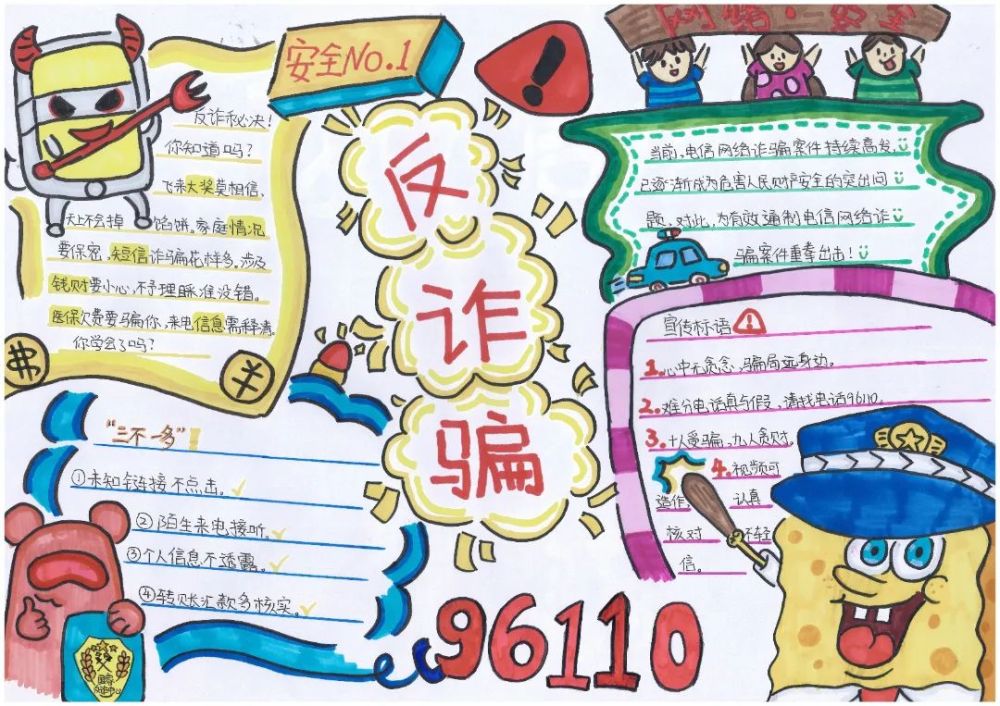 安全No.1
网络·安全
反诈骗
反诈秘决!
你知道吗?
飞来大奖莫相信,
天上不会掉 馅饼。家庭情况
要保密,短信诈骗花样多。涉及
钱财要小心,不予理睬准没错。
医保欠费要骗你,来电信息需释清。
你学会了吗?
当前,电信网络诈骗案件持续高发,
已逐渐成为危害人民财产安全的突出问
题,对此,为有效遏制电信网络诈
骗案件重拳出击!
宣传标语
1.心中无贪念,骗局远身边。
2.难分电话真与假,请找电话96110。
3.十人受骗,九人贪财。
4.视频可
造作, 认真
核对 不轻
信。
“三不一多”
①未知链接不点击。
②陌生来电接听。
③个人信息不透露。
④转账汇款多核实。
国家
反诈中心
96110